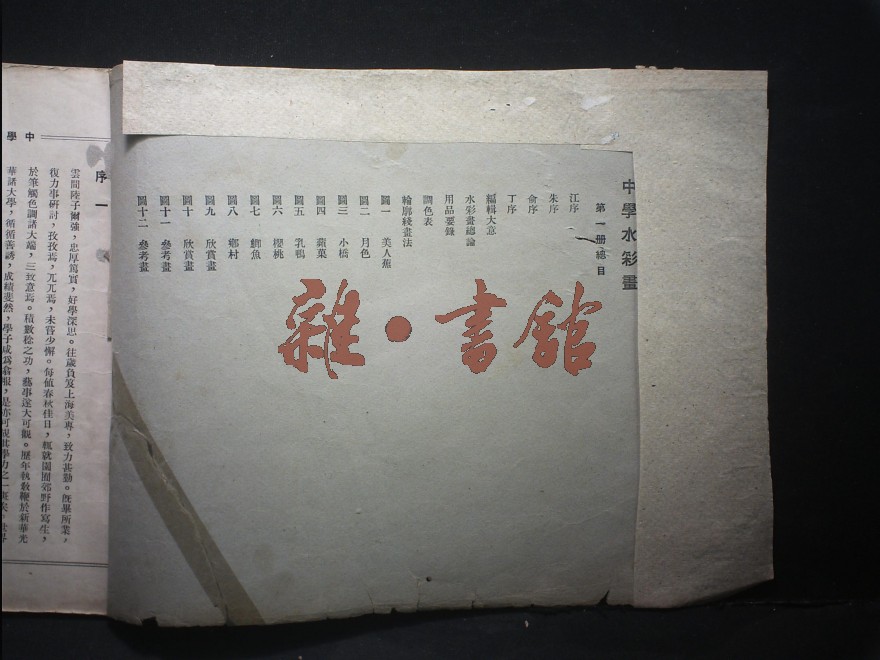 中學水彩畫
第一册總目
江序
朱序
俞序
丁序
編輯大意
水彩畫總論
用品要錄
調色表
輪廓綫畫法
圖一 美人蕉
圖二 月色
圖三 小橋
圖四 蘋菓
圖五 乳鴨
圖六 櫻桃
圖七 鯽魚
圖八 鄉村
圖九 欣賞畫
圖十 欣賞畫
圖十一 參考畫
圖十二 參考畫
雜·書館
中學
序一
雲間陸子爾強,忠厚篤實,好學深思。往歲負笈上海美專,致力甚勤。旣畢所業,
復力事研討,孜孜焉,兀兀焉,未嘗少懈。每値春秋佳日,輒就園囿郊野作寫生,
於筆觸色調諸大端,三致意焉。積數稔之功,藝事遂大可觀。歷年執敎鞭於新華光
華諸大學,循循善誘,成績斐然,學子咸爲翕服,是亦可覘其學力之一斑矣。